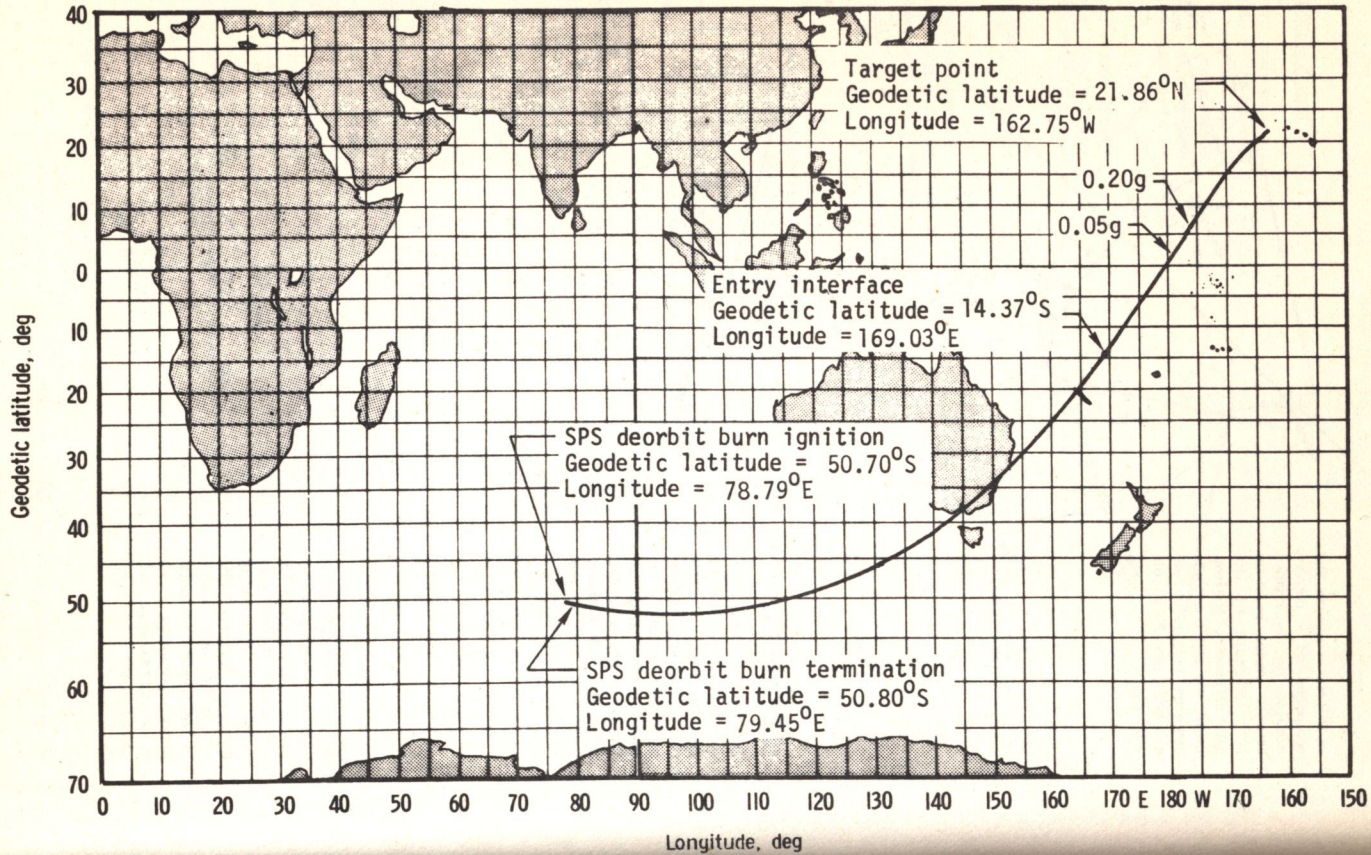 40
30
20
10
0
10
20
30
40
50
60
70
Geodetic latitude, deg
Target point
Geodetic latitude = 21.86°N
Longitude = 162.75°W
0.20g
0.05g
Entry interface
Geodetic latitude = 14.37°S
Longitude = 169.03°E
SPS deorbit burn ignition
Geodetic latitude = 50.70°S
Longitude = 78.79°E
SPS deorbit burn termination
Geodetic latitude = 50.80°S
Longitude = 79.45°E
0 10 20 30 40 50 60 70 80 90 100 110 120 130 140 150 160 170 E 180 W 170 160 150
Longitude, deg